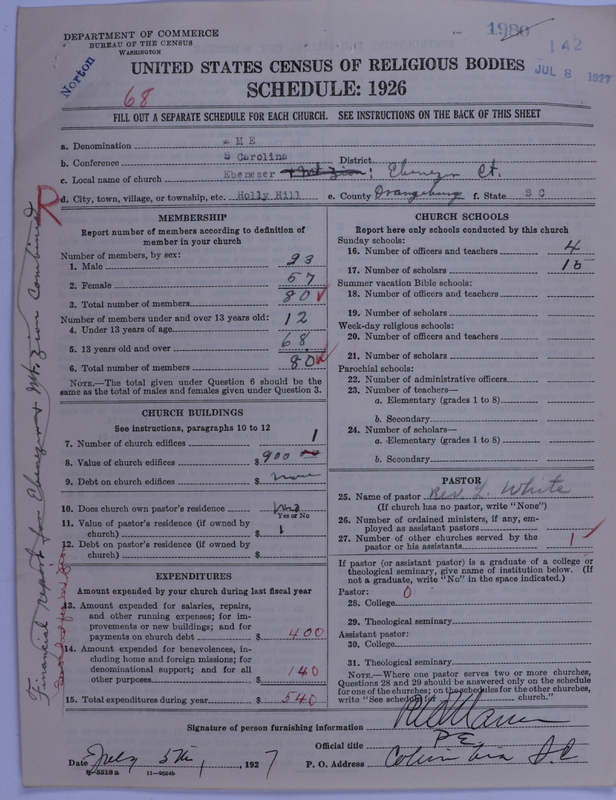 DEPARTMENT OF COMMERCE
BUREAU OF THE CENSUS
WASHINGTON
1980
142
JUL 8 1927
Norton
UNITED STATES CENSUS OF RELIGIOUS BODIES
SCHEDULE: 1926
68
FILL OUT A SEPARATE SCHEDULE FOR EACH CHURCH. SEE INSTRUCTIONS ON THE BACK OF THIS SHEET
a. Denomination A M E
b. Conference S Carolina District
c. Local name of church Ebenezer & Mt Zion; Ebenezer Ct.
d. City, town, village, or township, etc. Holly Hill e. County Orangeburg f. State S C
R
Financial report for Ebenezer & Mt Zion Combined
MEMBERSHIP
Report number of members according to definition of
member in your church
Number of members, by sex:
1. Male 23
2. Female 57
3. Total number of members 80
Number of members under and over 13 years old:
4. Under 13 years of age 12
5. 13 years old and over 68
6. Total number of members 80
NOTE.—The total given under Question 6 should be the
same as the total of males and females given under Question 3.
CHURCH BUILDINGS
See instructions, paragraphs 10 to 12
7. Number of church edifices 1
8. Value of church edifices $ 900 00
9. Debt on church edifices $ none
10. Does church own pastor's residence
Yes or No
11. Value of pastor's residence (if owned by
church) $
12. Debt on pastor's residence (if owned by
church) $
EXPENDITURES
Amount expended by your church during last fiscal year
13. Amount expended for salaries, repairs,
and other running expenses; for im-
provements or new buildings; and for
payments on church debt $ 400
14. Amount expended for benevolences, in-
cluding home and foreign missions; for
denominational support; and for all
other purposes $ 140
15. Total expenditures during year $ 540
CHURCH SCHOOLS
Report here only schools conducted by this church
Sunday schools:
16. Number of officers and teachers 4
17. Number of scholars 18
Summer vacation Bible schools:
18. Number of officers and teachers
19. Number of scholars
Week-day religious schools:
20. Number of officers and teachers
21. Number of scholars
Parochial schools:
22. Number of administrative officers
23. Number of teachers—
a. Elementary (grades 1 to 8)
b. Secondary
24. Number of scholars—
a. Elementary (grades 1 to 8)
b. Secondary
PASTOR
25. Name of pastor Rev. L. White
(If church has no pastor, write "None")
26. Number of ordained ministers, if any, em-
ployed as assistant pastors
27. Number of other churches served by the
pastor or his assistants 1
If pastor (or assistant pastor) is a graduate of a college or
theological seminary, give name of institution below. (If
not a graduate, write "No" in the space indicated.)
Pastor: 0
28. College
29. Theological seminary
Assistant pastor:
30. College
31. Theological seminary
NOTE.—Where one pastor serves two or more churches,
Questions 28 and 29 should be answered only on the schedule
for one of the churches; on the schedules for the other churches,
write "See schedule for church."
Signature of person furnishing information
Official title P E
Date July 5th, 1927 P. O. Address Columbia S.C
8-5518a 11-9664b